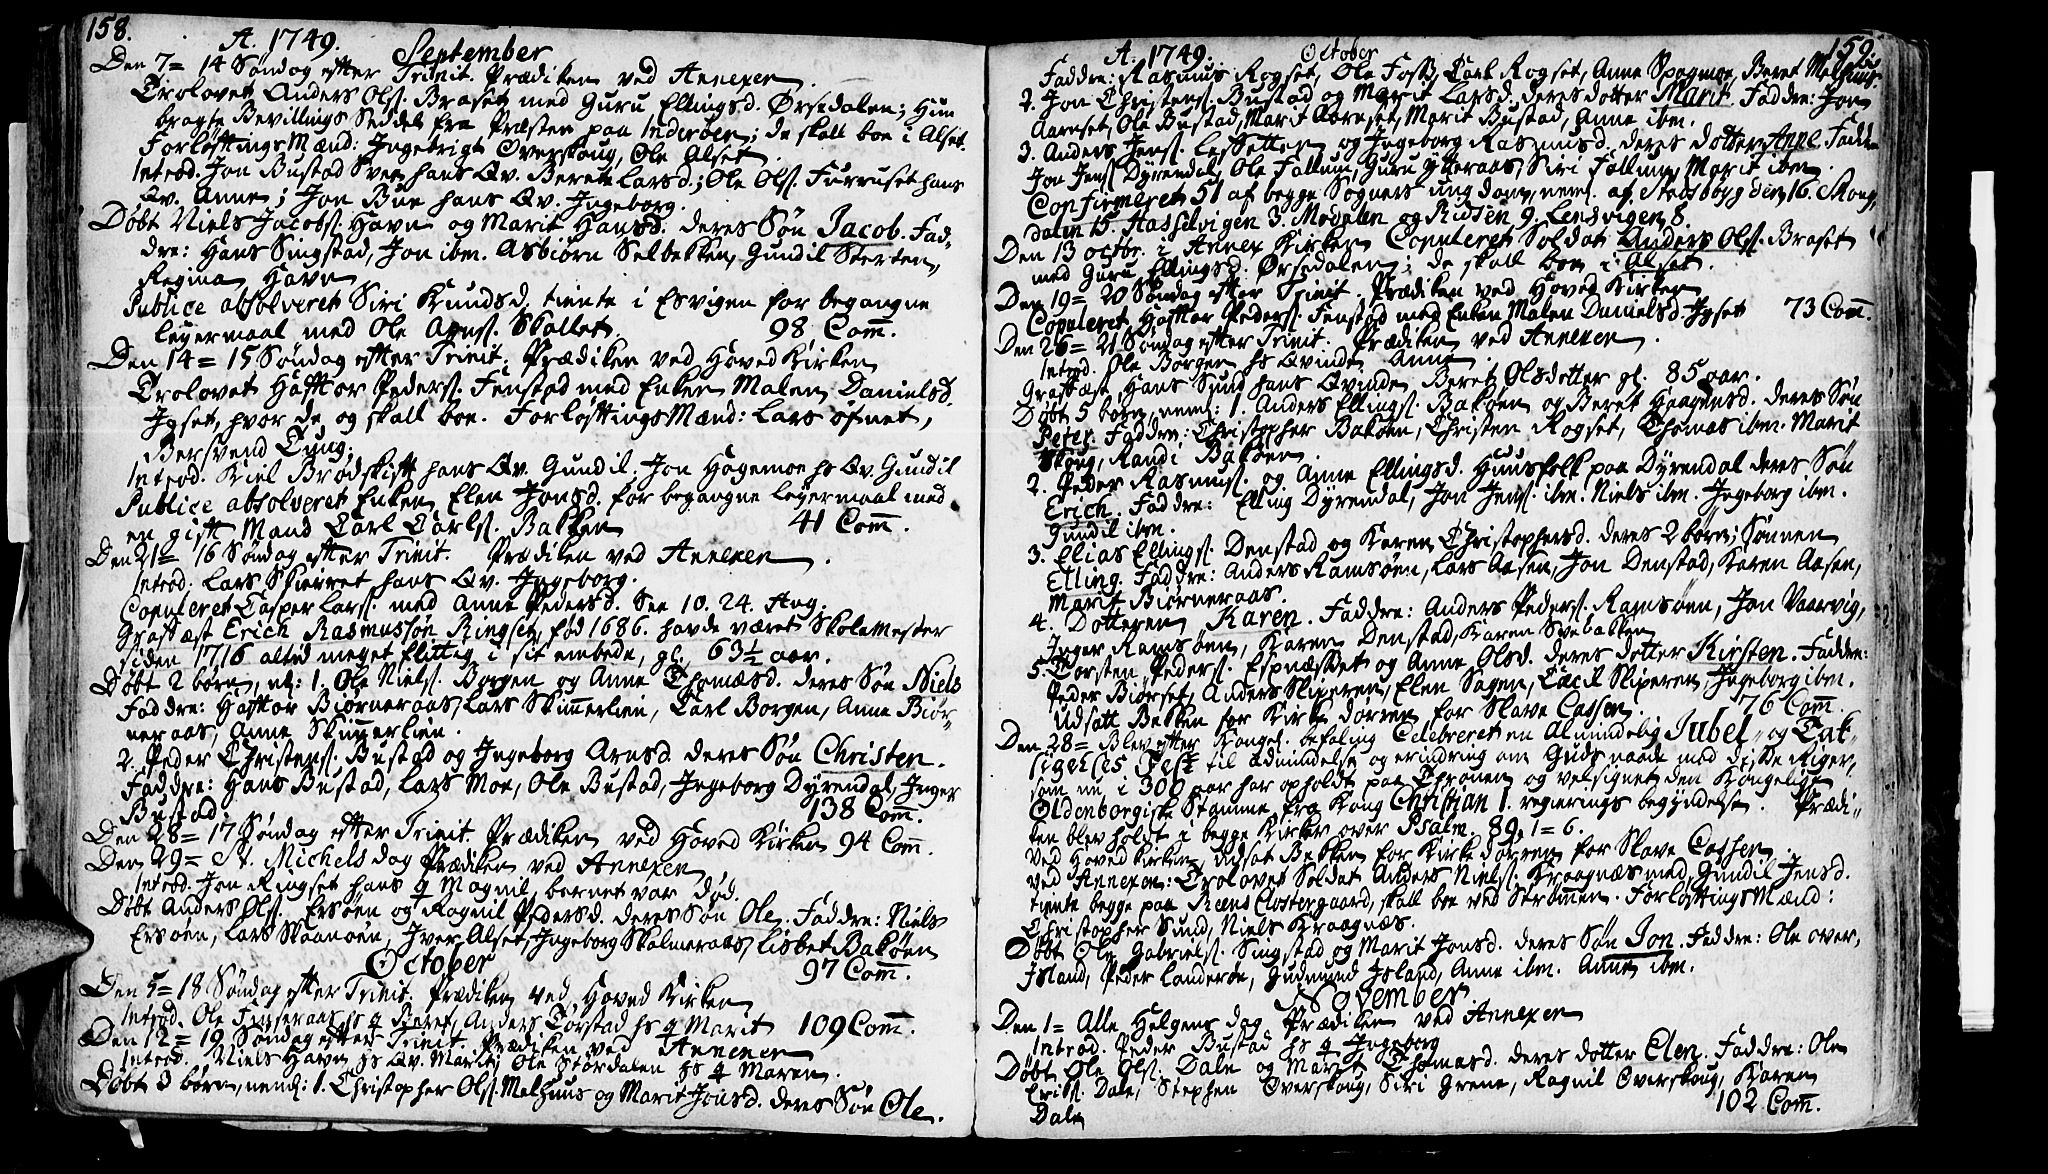 158.
A. 1749. September
Den 7= 14 Søndag efter Trinit. Prædiken ved Annexen
Trolovet Anders Ols. Braset med Guru Ellingsd. Ørsedalen; Hun
bragte Bevillings Seddel fra Præsten paa Inderøen; de skall boe i Alset.
Forløftings Mænd: Ingebrigt Overskoug, Ole Alset.
Introd. Jon Bustad Sven hans Qv. Berete Larsd.; Ole Ols. Furruset hans
Qv. Anne; Jon Bue hans Qv. Ingeborg.
Døbt Niels Jacobs. Havn og Marit Hansd. deres Søn Jacob. Fad-
dre: Hans Singstad, Jon ibm. Asbiørn Selbekken, Gundil Sterten,
Regina Havn
Publice absolveret Siri Knudsd. tiente i Esvigen for begangne
Leyermaal med Ole Arns. Skallet. 98 Com̅.
Den 14= 15 Søndag efter Trinit. Prædiken ved Hoved Kirken
Trolovet Hafftor Peders. Fenstad med Enken Malen Danielsd.
Igset, hvor de og skall boe. Forløftings Mænd: Lars ofnet,
Bersvend Tung.
Introd. Kiel Brødskift hans Qv. Gundil. Jon Hagemoe hs Qv. Gundil
Publice absolveret Enken Elen Jonsd. for begangne leyermaal med
en gift Mand Carl Carls. Bakken 41 Com̅.
Den 21= 16 Søndag efter Trinit. Prædiken ved Annexen
Introd. Lars Skierret hans Qv. Ingeborg.
Copuleret Casper Lars. med Anne Pedersd. See 10. 24. Aug.
Grafæst Erich Rasmussøn Ringset, fød 1686. havde været Skolemester
siden 1716 altid meget flittig i sit embede, gl. 63½ aar.
Døbt 2 børn, nl: 1. Ole Niels. Borgen og Anne Thomæsd. deres Søn Niels
Faddre: Hafftor Biørneraas, Lars Skimmerlien, Carl Borgen, Anne Biør-
neraas, Anne Skimmerlien.
2. Peder Christens. Bustad og Ingeborg Arnsd. deres Søn Christen.
Faddre: Hans Bustad, Lars Moe, Ole Bustad, Ingeborg Dyrendal, Inger
Bustad. 138 Com̅.
Den 28= 17 Søndag efter Trinit. Prædiken ved Hoved Kirken 94 Com̅.
Den 29= St. Michels dag Prædiken ved Annexen
Introd. Jon Ringset hans q Magnil, barnet var død.
Døbt Anders Ols. Ersøen og Ragnil Pedersd. deres Søn Ole. Faddre: Niels
Ersøen, Lars Skaanøen, Iver Alset, Ingeborg Skalmeraas, Lisbet Bakøen
October 97 Com̅.
Den 5= 18 Søndag efter Trinit. Prædiken ved Hoved Kirken
Introd. Ole Finseraas hs q Beret, Anders Torstad hs q Marit 109 Com̅.
Den 12= 19 Søndag efter Trinit. Prædiken ved Annexen
Introd. Niels Havn hs Qv. Marit; Ole Størdalen hs q Maren.
Døbt 3 børn, neml: 1. Christopher Ols. Melhuus og Marit Jonsd. deres Søn Ole.
A. 1749. October 159.
Faddre: Rasmus Rogset, Ole Foss, Carl Rogset, Anne Spagmoe, Beret Melhuus.
2. Jon Christens. Bustad og Marit Larsd. deres dotter Marit. Faddre: Jon
Aarnset, Ole Bustad, Marit Aarnset, Marit Bustad, Anne ibm.
3. Anders Jens. Lessetten og Ingeborg Rasmusd. deres dotter Anne. Faddre
Jon Jens. Dyrendal, Ole Fallum, Guru Ytteraas, Siri Fallum, Marit ibm.
Confirmeret 51 af begge Sogners ungdom, neml. af Stadsbygden 16. Skoug,
dalen 15. Hasselvigen 3. Mødalen og Ridsen 9. Lensvigen 8.
Den 13 octbr. i Annex Kirken Copuleret Soldat Anders Ols. Braset
med Guru Ellingsd. Ørsedalen; de skall boe i Alset.
Den 19= 20 Søndag efter Trinit. Prædiken ved Hoved Kirken
Copuleret Hafftor Peders. Fenstad med Enken Malen Danielsd. Igset 73 Com̅.
Den 26= 21 Søndag efter Trinit. Prædiken ved Annexen.
Introd. Ole Borgen hs Qvinde Anne
Grafæst Hans Sund hans Qvinde Beret Olsdotter gl. 85 aar.
Døbt 5 børn, neml: 1. Anders Ellings. Bakøen og Beret Haagensd. deres Søn
Peter. Faddre: Christopher Bakøen, Christen Rogset, Thomas ibm. Marit
Skoug, Randi Bakøen.
2. Peder Rasmus. og Anne Ellingsd. Huusfolk paa Dyrendal deres Søn
Erich. Faddre: Elling Dyrendal, Jon Jens. ibm. Niels ibm. Ingeborg ibm.
Gundil ibm.
3. Elias Ellings. Denstad og Karen Christophersd. deres 2 børn; Sønnen
Elling. Faddre: Anders Ramsøen, Lars Aasen, Jon Denstad, Karen Aasen,
Marit Biørneraas.
4. Dotteren Karen. Faddre: Anders Peders. Ramsøen, Jon Vaarvig,
Inger Ramsøen, Karen Denstad, Karen Svebakken
5. Torsten Peders. Espnæsset og Anne Olsd. deres dotter Kirsten. Faddre:
Peder Biørset, Anders Skiperen, Elen Sagen, Cæcil Skiperen, Ingeborg ibm.
Udsatt Bekken for Kirke dørren for Slave Cassen. 76 Com̅.
Den 28= Blev efter Kongel. befaling Celebreret en Almindelig Jubel- og Tak-
sigelses Fest til ædmindelse og erindring om Guds naade med disse Riger,
som nu i 300 aar har opholdt paa Thronen og velsignet den Kongelige
Oldenborgiske Stamme fra Kong Christian 1. regierings begyndelse. Prædi-
ken blev holdt i begge Kirker over Psalm. 89, 1=6.
Ved Hoved Kirken udsat Bekken for Kirke dørren for Slave Cassen.
Ved Annexen: Trolovet Soldat Anders Niels. Kraagnæs med Gundil Jensd.
tiente begge paa Reens Clostergaard, skall boe ved Strømen. Forløftings Mænd:
Christopher Sund, Niels Kraagnæs.
Døbt Ole Gabriels. Singstad og Marit Jonsd. deres Søn Jon. Faddre: Ole over,
Island, Peder Landerøe, Gudmund Island, Anne ibm. Anne ibm.
November
Den 1= Alle Helgens dag Prædiken ved Annexen
Introd. Peder Bustad hs q Ingeborg
Døbt Ole Ols. Dale og Marit Thomasd. deres dotter Elen. Faddre: Ole
Eriks. Dale, Stephen Overskoug, Siri Grene, Ragnil Overskoug, Karen
Dale 102 Com̅.